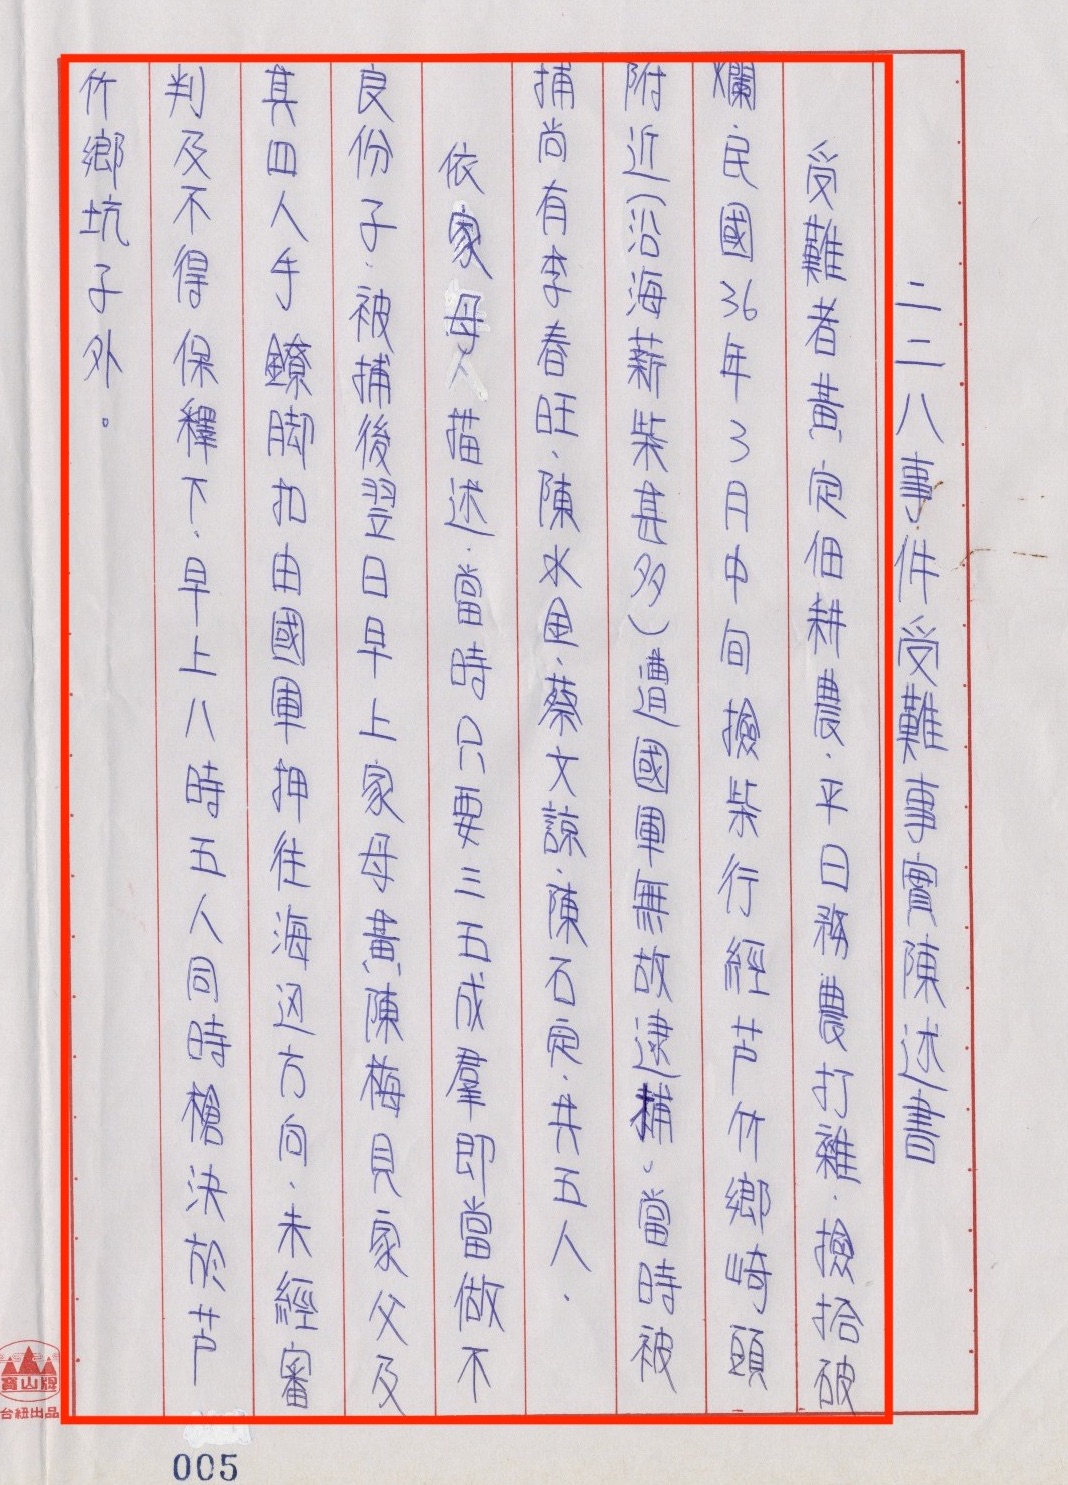 二二八事件受難事實陳述書
受難者黃定佃耕農.平日務農打雜.撿拾破
爛.民國36年3月中旬撿柴行經芦竹鄉崎頭
附近(沿海薪柴甚多)遭國軍無故逮捕.當時被
捕尚有李春旺.陳水金.蔡文諒.陳石定.共五人.
依家母人描述.當時只要三五成羣即當做不
良份子.被捕後翌日早上家母黃陳梅見家父及
其四人手鐐脚扣由國軍押往海边方向.未經審
判及不得保釋下.早上八時五人同時槍決於芦
竹鄉坑子外。
寶山牌
台紐出品
005